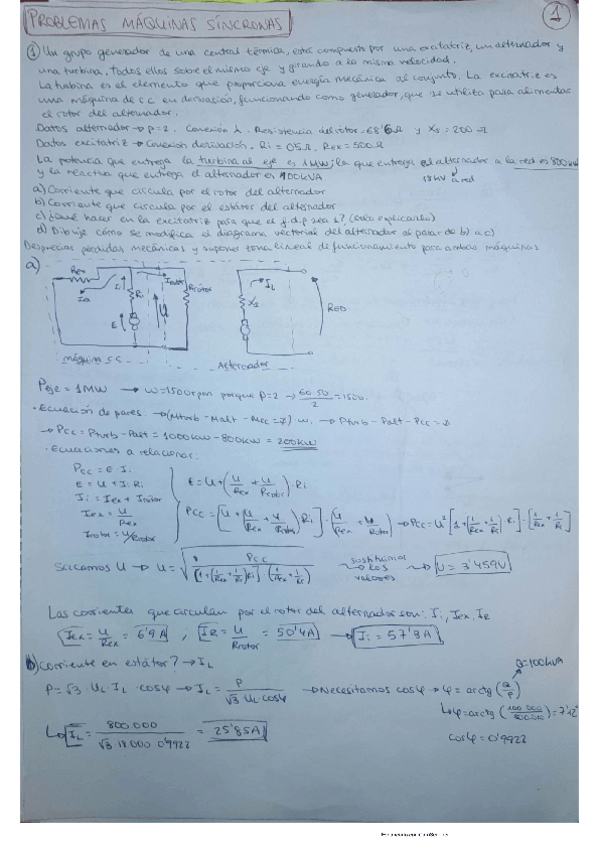 PROBLEMAS MÁQUINAS SÍNCRONAS
1
① Un grupo generador de una central térmica, está compuesto por una excitatriz, un alternador y
una turbina, todos ellos sobre el mismo eje y girando a la misma velocidad.
La turbina es el elemento que proporciona energía mecánica al conjunto. La excitatriz es
una máquina de c.c en derivación, funcionando como generador, que se utiliza para alimentar
el rotor del alternador.
Datos alternador → p=2. Conexión λ. Resistencia del rotor = 68'6Ω y Xs = 200 Ω
Datos excitatriz → Conexión derivación. Ri = 0'5Ω. Rex = 500Ω
La potencia que entrega la turbina al eje es 1MW; la que entrega el alternador a la red es 800kW
y la reactiva que entrega el alternador es 100kVA
18kV a red
a) Corriente que circula por el rotor del alternador
b) Corriente que circula por el estátor del alternador
c) ¿Qué hacer en la excitatriz para que el f.d.p sea 1? (solo explicarlo)
d) Dibuje cómo se modifica el diagrama vectorial del alternador al pasar de b) a c)
Desprecias pérdidas mecánicas y supones zona lineal de funcionamiento para ambas máquinas
a)
Rex
Ii
Irotor
Rrotor
Iex
Ri
E
U
máquina CC
IL
Xs
RED
Alternador
Peje = 1MW → w=1500rpm porque P=2 → 60·50/2 = 1500
· Ecuación de pares → (Mturb - Malt - Mcc = ∅) w → Pturb - Palt - Pcc = ∅
→ Pcc = Pturb - Palt = 1000kW - 800kW = 200kW
· Ecuaciones a relacionar:
Pcc = E · Ii
E = U + Ii · Ri
Ii = Iex + Irotor
Iex = U/Rex
Irotor = U/Rrotor
E = U + (U/Rex + U/Rrotor) · Ri
Pcc = [U + (U/Rex + U/Rrotor) Ri] · (U/Rex + U/Rrotor) → Pcc = U² [1 + (1/Rex + 1/Rr) Ri] · [1/Rex + 1/Rr]
Sacamos U → U = √ Pcc / [1 + (1/Rex + 1/Rr) Ri] (1/Rex + 1/Rr)
sustituimos los valores
U = 3'459V
Las corrientes que circulan por el rotor del alternador son: Ii, Iex, IR
Iex = U/Rex = 6'9A , IR = U/Rrotor = 50'4A → Ii = 57'3A
b) Corriente en estátor? → IL
Q=100kVA
P = √3 · UL · IL · cosφ → IL = P / √3 · UL · cosφ → Necesitamos cosφ → φ = arctg (Q/P)
φ = arctg (100.000/800.000) = 7'12°
IL = 800.000 / √3 · 18.000 · 0'9922 = 25'85A
cosφ = 0'9922